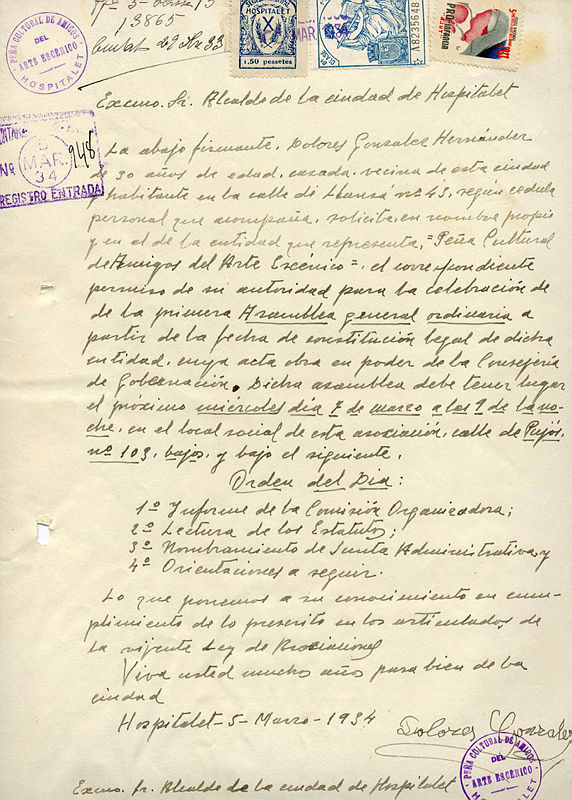 13865
PEÑA CULTURAL DE AMIGOS
DEL
ARTE ESCENICO
HOSPITALET
HOSPITALET
X
1,50 pesetas
MAR 1934
A8235648
PRO
infancia
5
MAR.
34
Nº
948
REGISTRO ENTRADA
Excmo. Sr. Alcalde de la ciudad de Hospitalet
La abajo firmante, Dolores Gonzalez Hernández
de 30 años de edad, casada, vecina de esta ciudad
y habitante en la calle de Llansá nº 43, según cedula
personal que acompaña, solicita, en nombre propio
y en el de la entidad que representa, "Peña Cultural
de Amigos del Arte Escénico", el correspondiente
permiso de su autoridad para la celebración de
de la primera Asamblea general ordinaria a
partir de la fecha de constitución legal de dicha
entidad, cuya acta obra en poder de la Consejería
de Gobernación. Dicha asamblea debe tener lugar
el próximo miércoles día 7 de marzo a las 9 de la no-
che, en el local social de esta asociación, calle de Pujós,
nº 103, bajos, y bajo el siguiente,
Orden del Dia:
1º Informe de la Comisión Organizadora;
2º Lectura de los Estatutos;
3º Nombramiento de Junta Administrativa, y
4º Orientaciones a seguir.
Lo que ponemos a su conocimiento en cum-
plimiento de lo prescrito en los articulados de
la vijente Ley de Asociacional
Viva usted mucho años para bien de la
ciudad
Hospitalet-5-Marzo-1934
Dolores Gonzalez
PEÑA CULTURAL DE AMIGOS
DEL
ARTE ESCENICO
Excmo. Sr. Alcalde de la ciudad de Hospitalet